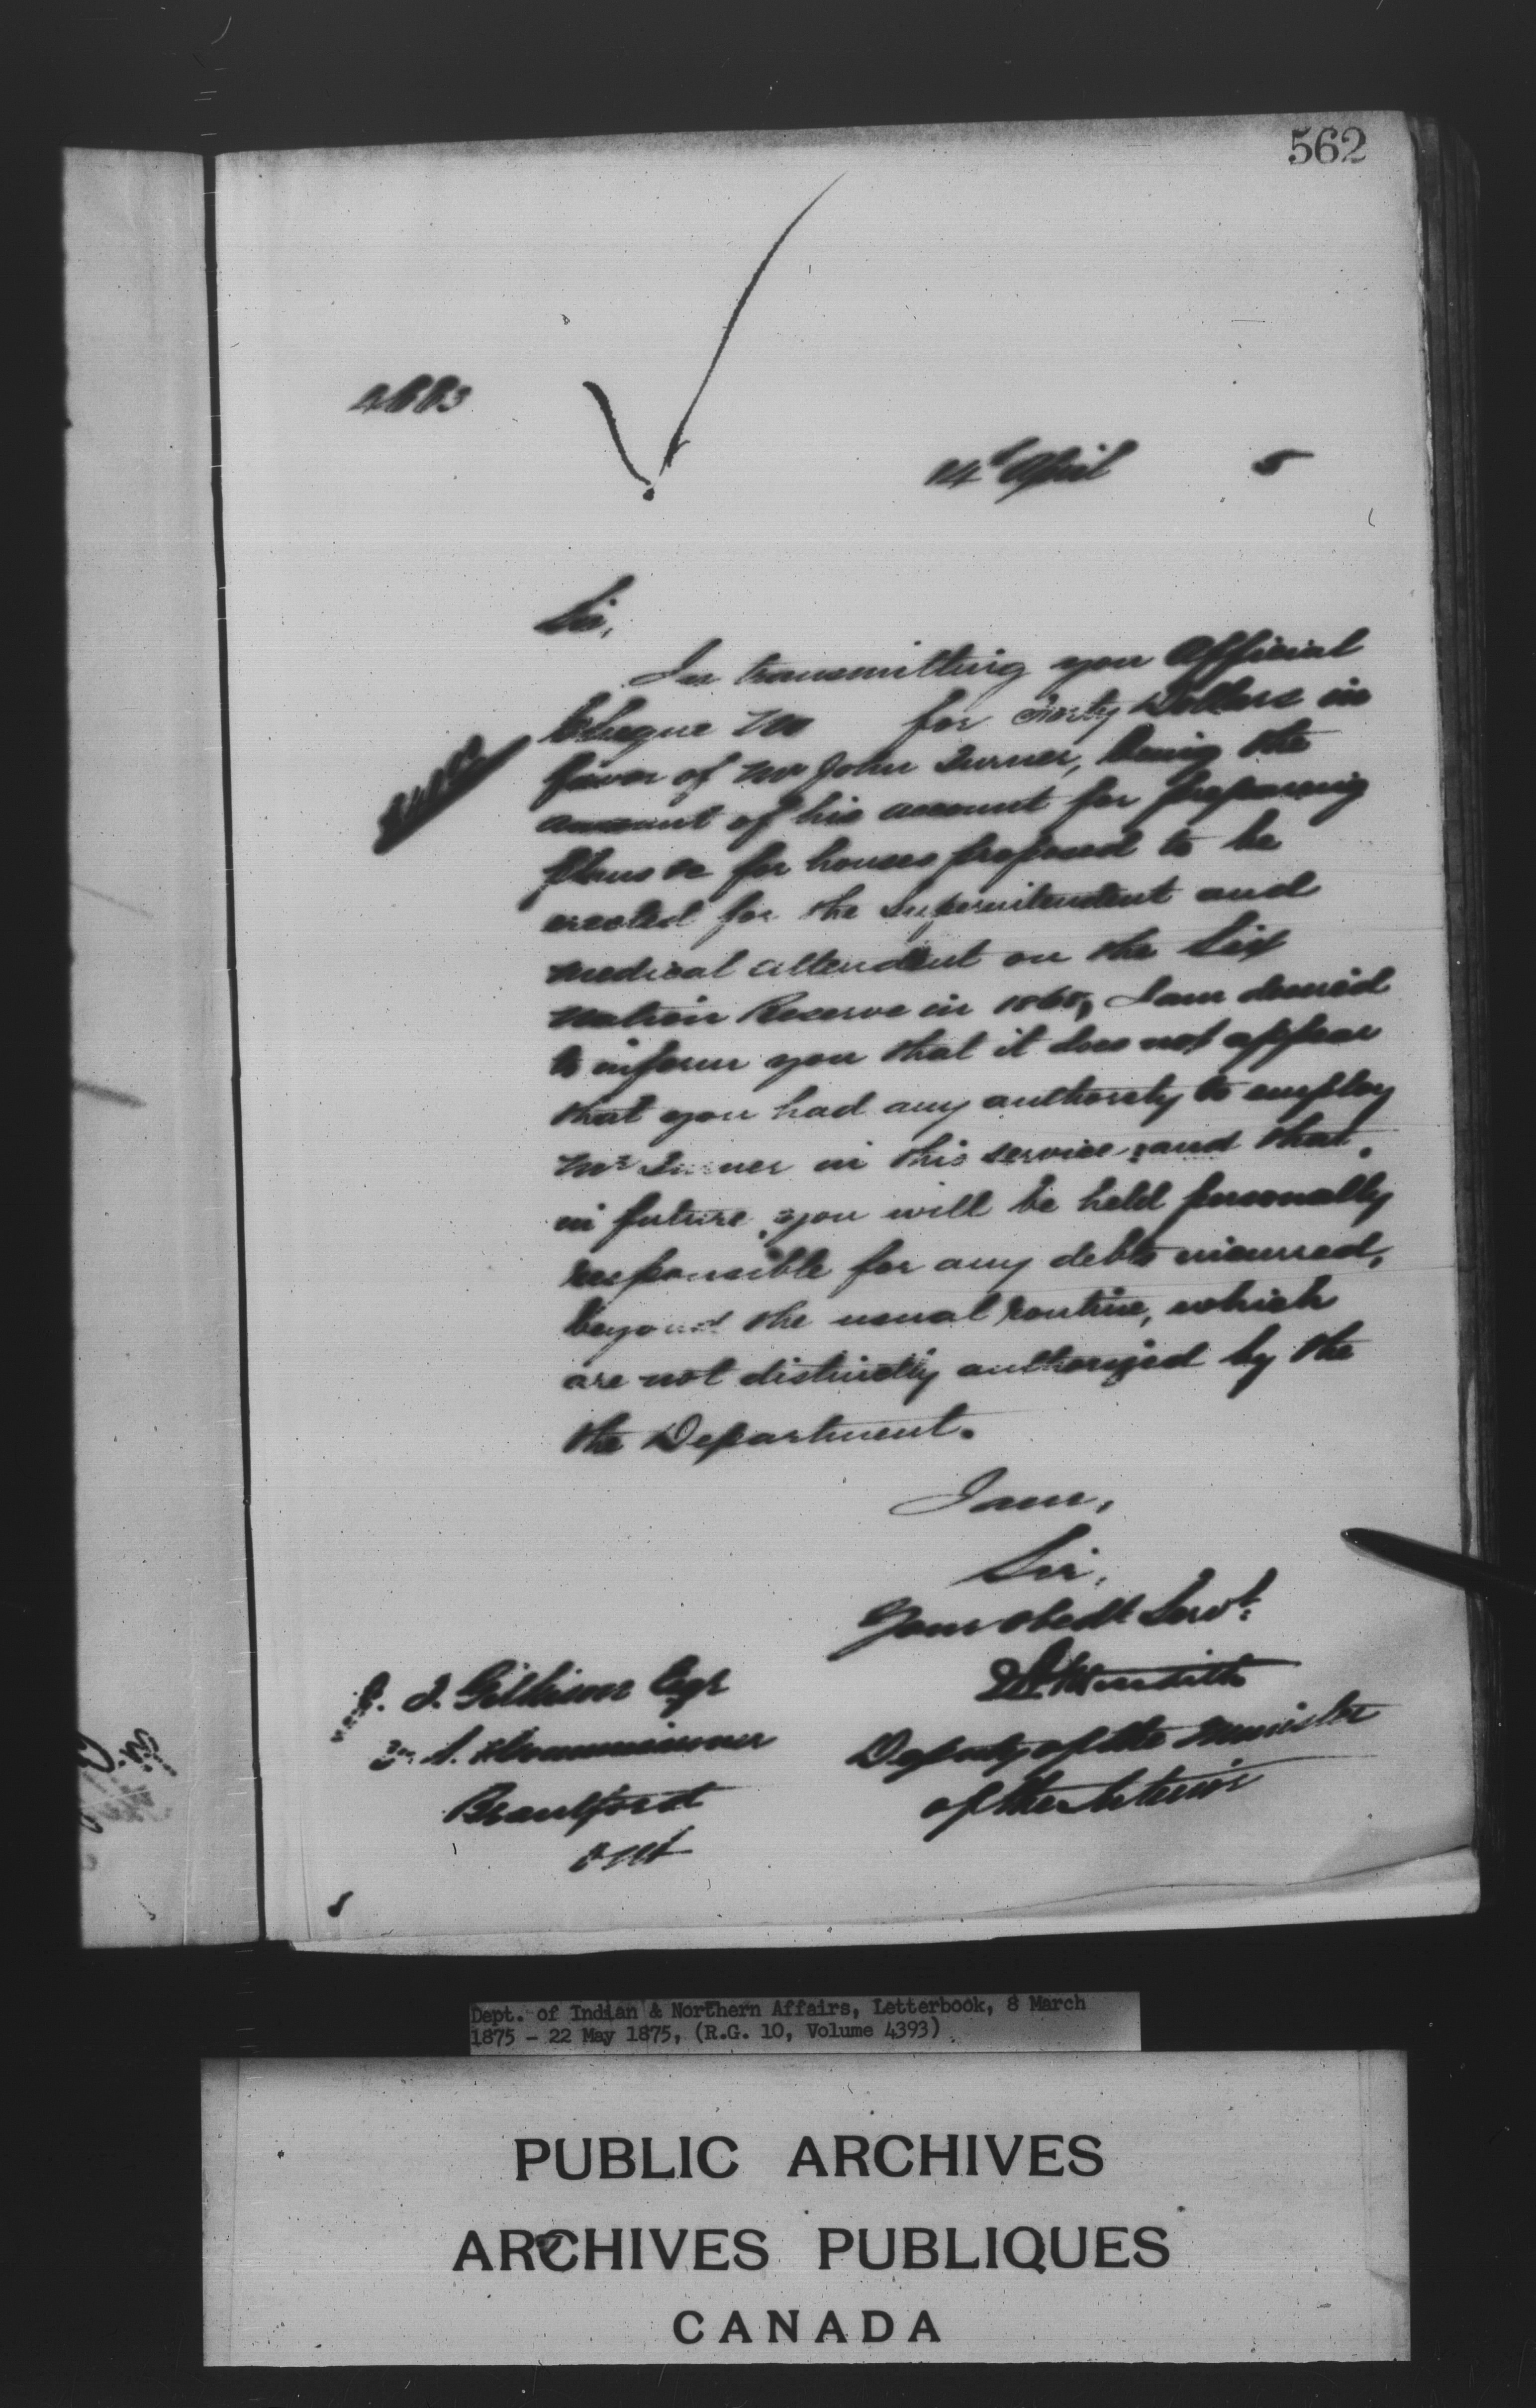 562
4883
14th April 5
Sir,
In transmitting you Official
Cheque No for Dollars in
favor of Mr John Turner, being the
amount of his account for preparing
plans &c for houses proposed to be
erected for the Superintendent and
medical attendent on the Six
Nation Reserve in 1868, I am desired
to inform you that it does not appear
that you had any authority to employ
Mr Turner in this service, and that,
in future, you will be held personally
responsible for any debts incurred,
beyond the usual routine, which
are not distinctly authorized by the
the Department.
I am,
Sir,
Your obedt Servt.
J. T. Gilkison Esqr
Meredith
V. S. & Commissioner
Deputy of the Minister
Brantford
of the Interior
Ont
Dept. of Indian & Northern Affairs, Letterbook, 8 March
1875 - 22 May 1875, (R.G. 10, Volume 4393)
PUBLIC ARCHIVES
ARCHIVES PUBLIQUES
CANADA